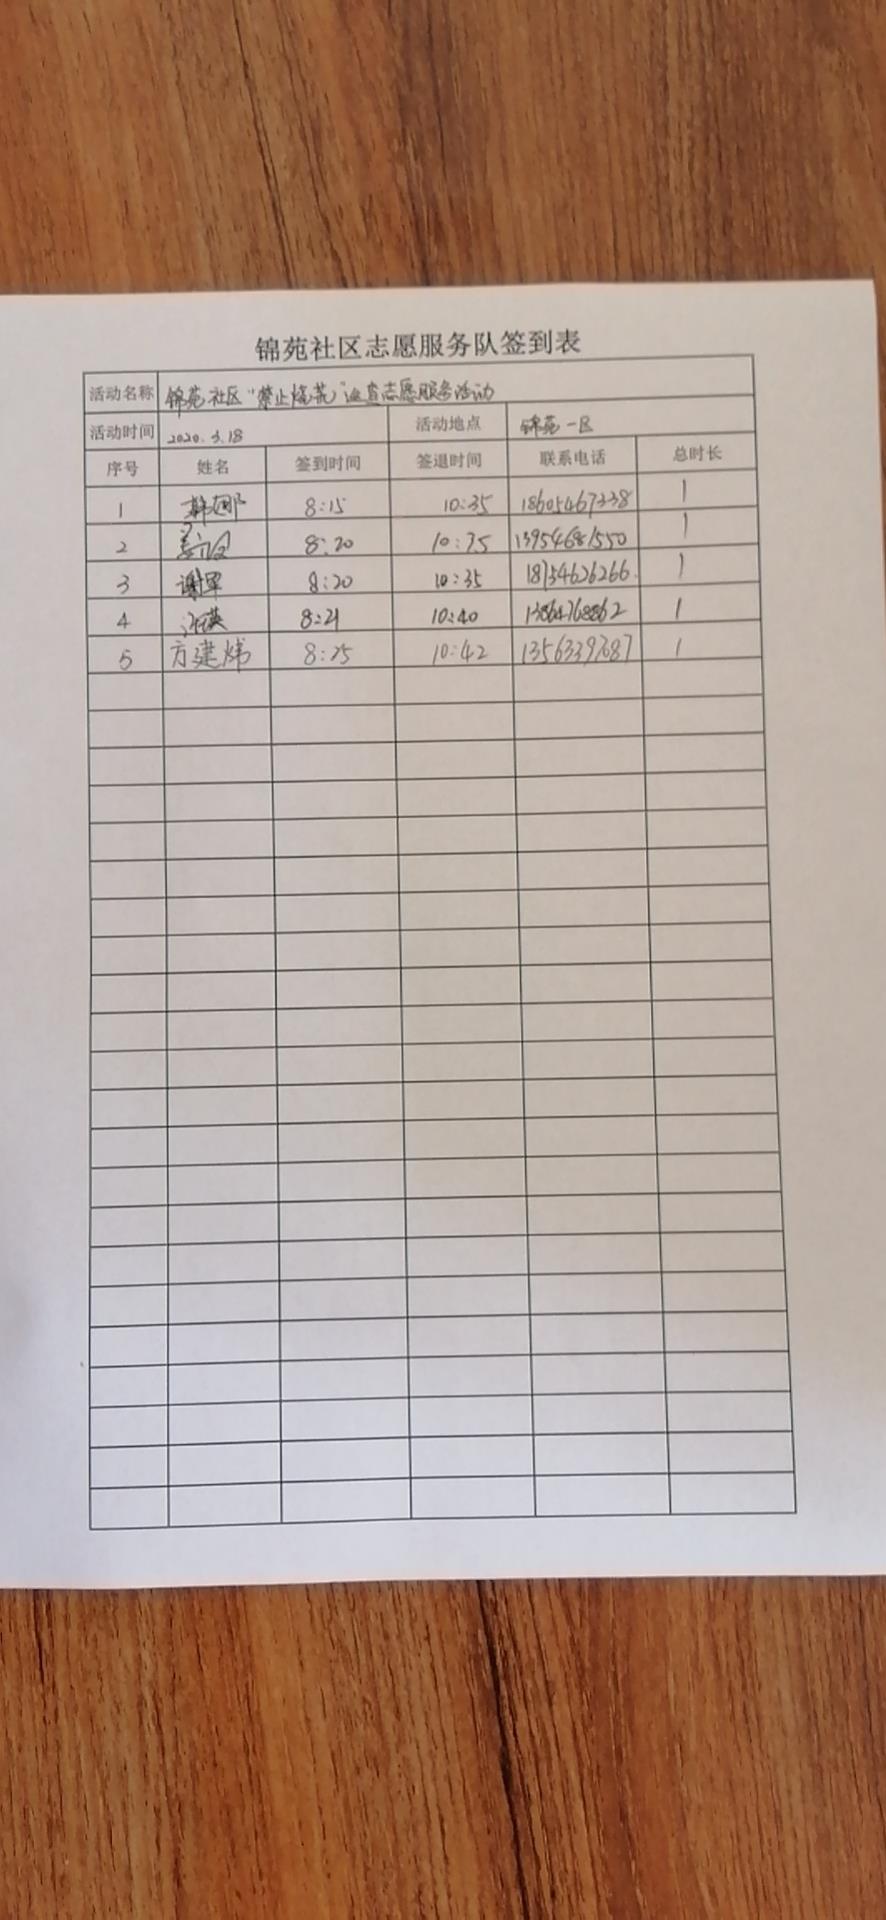 锦苑社区志愿服务队签到表
活动名称 锦苑社区“禁止烧荒”巡查志愿服务活动
活动时间 2020.3.18 活动地点 锦苑一区
序号 姓名 签到时间 签退时间 联系电话 总时长
1 韩娜 8:15 10:35 18605467338 1
2 8:20 10:35 13954681550 1
3 谢军 8:20 10:35 18154626266 1
4 8:21 10:40 13864768862 1
5 方建炜 8:25 10:42 1